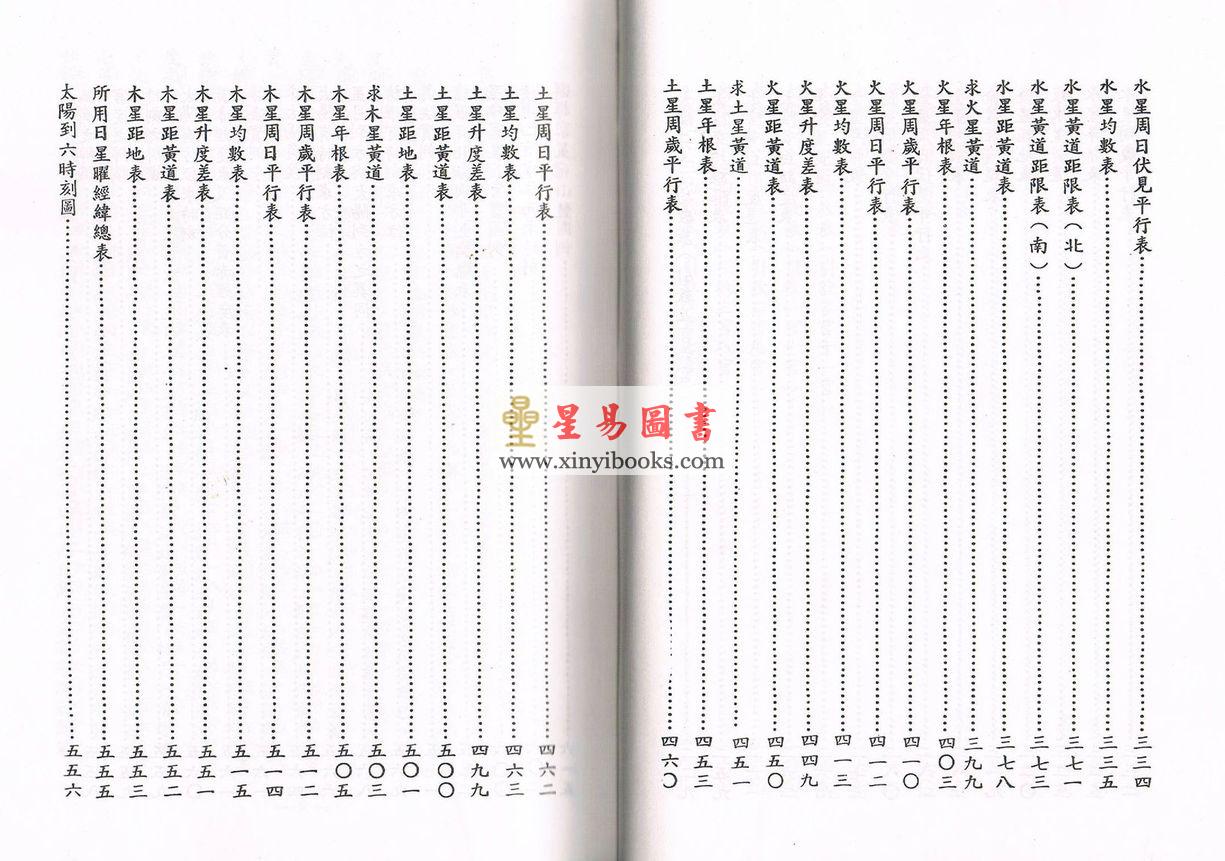 水星周日伏見平行表……三三四
水星均數表……三三五
水星黃道距限表(北)……三七一
水星黃道距限表(南)……三七三
水星距黃道表……三七八
求火星黃道……三九九
火星年根表……四〇三
火星周歲平行表……四一〇
火星周日平行表……四一二
火星均數表……四一三
火星升度差表……四四九
火星距黃道表……四五〇
求土星黃道……四五一
土星年根表……四五三
土星周歲平行表……四六〇
土星周日平行表……四六二
土星均數表……四六三
土星升度差表……四九九
土星距黃道表……五〇〇
土星距地表……五〇一
求木星黃道……五〇三
木星年根表……五〇五
木星周歲平行表……五一二
木星周日平行表……五一四
木星均數表……五一五
木星升度差表……五五一
木星距黃道表……五五二
木星距地表……五五三
所用日星曜經緯總表……五五五
太陽到六時刻圖……五五六
星易圖書
www.xinyibooks.com